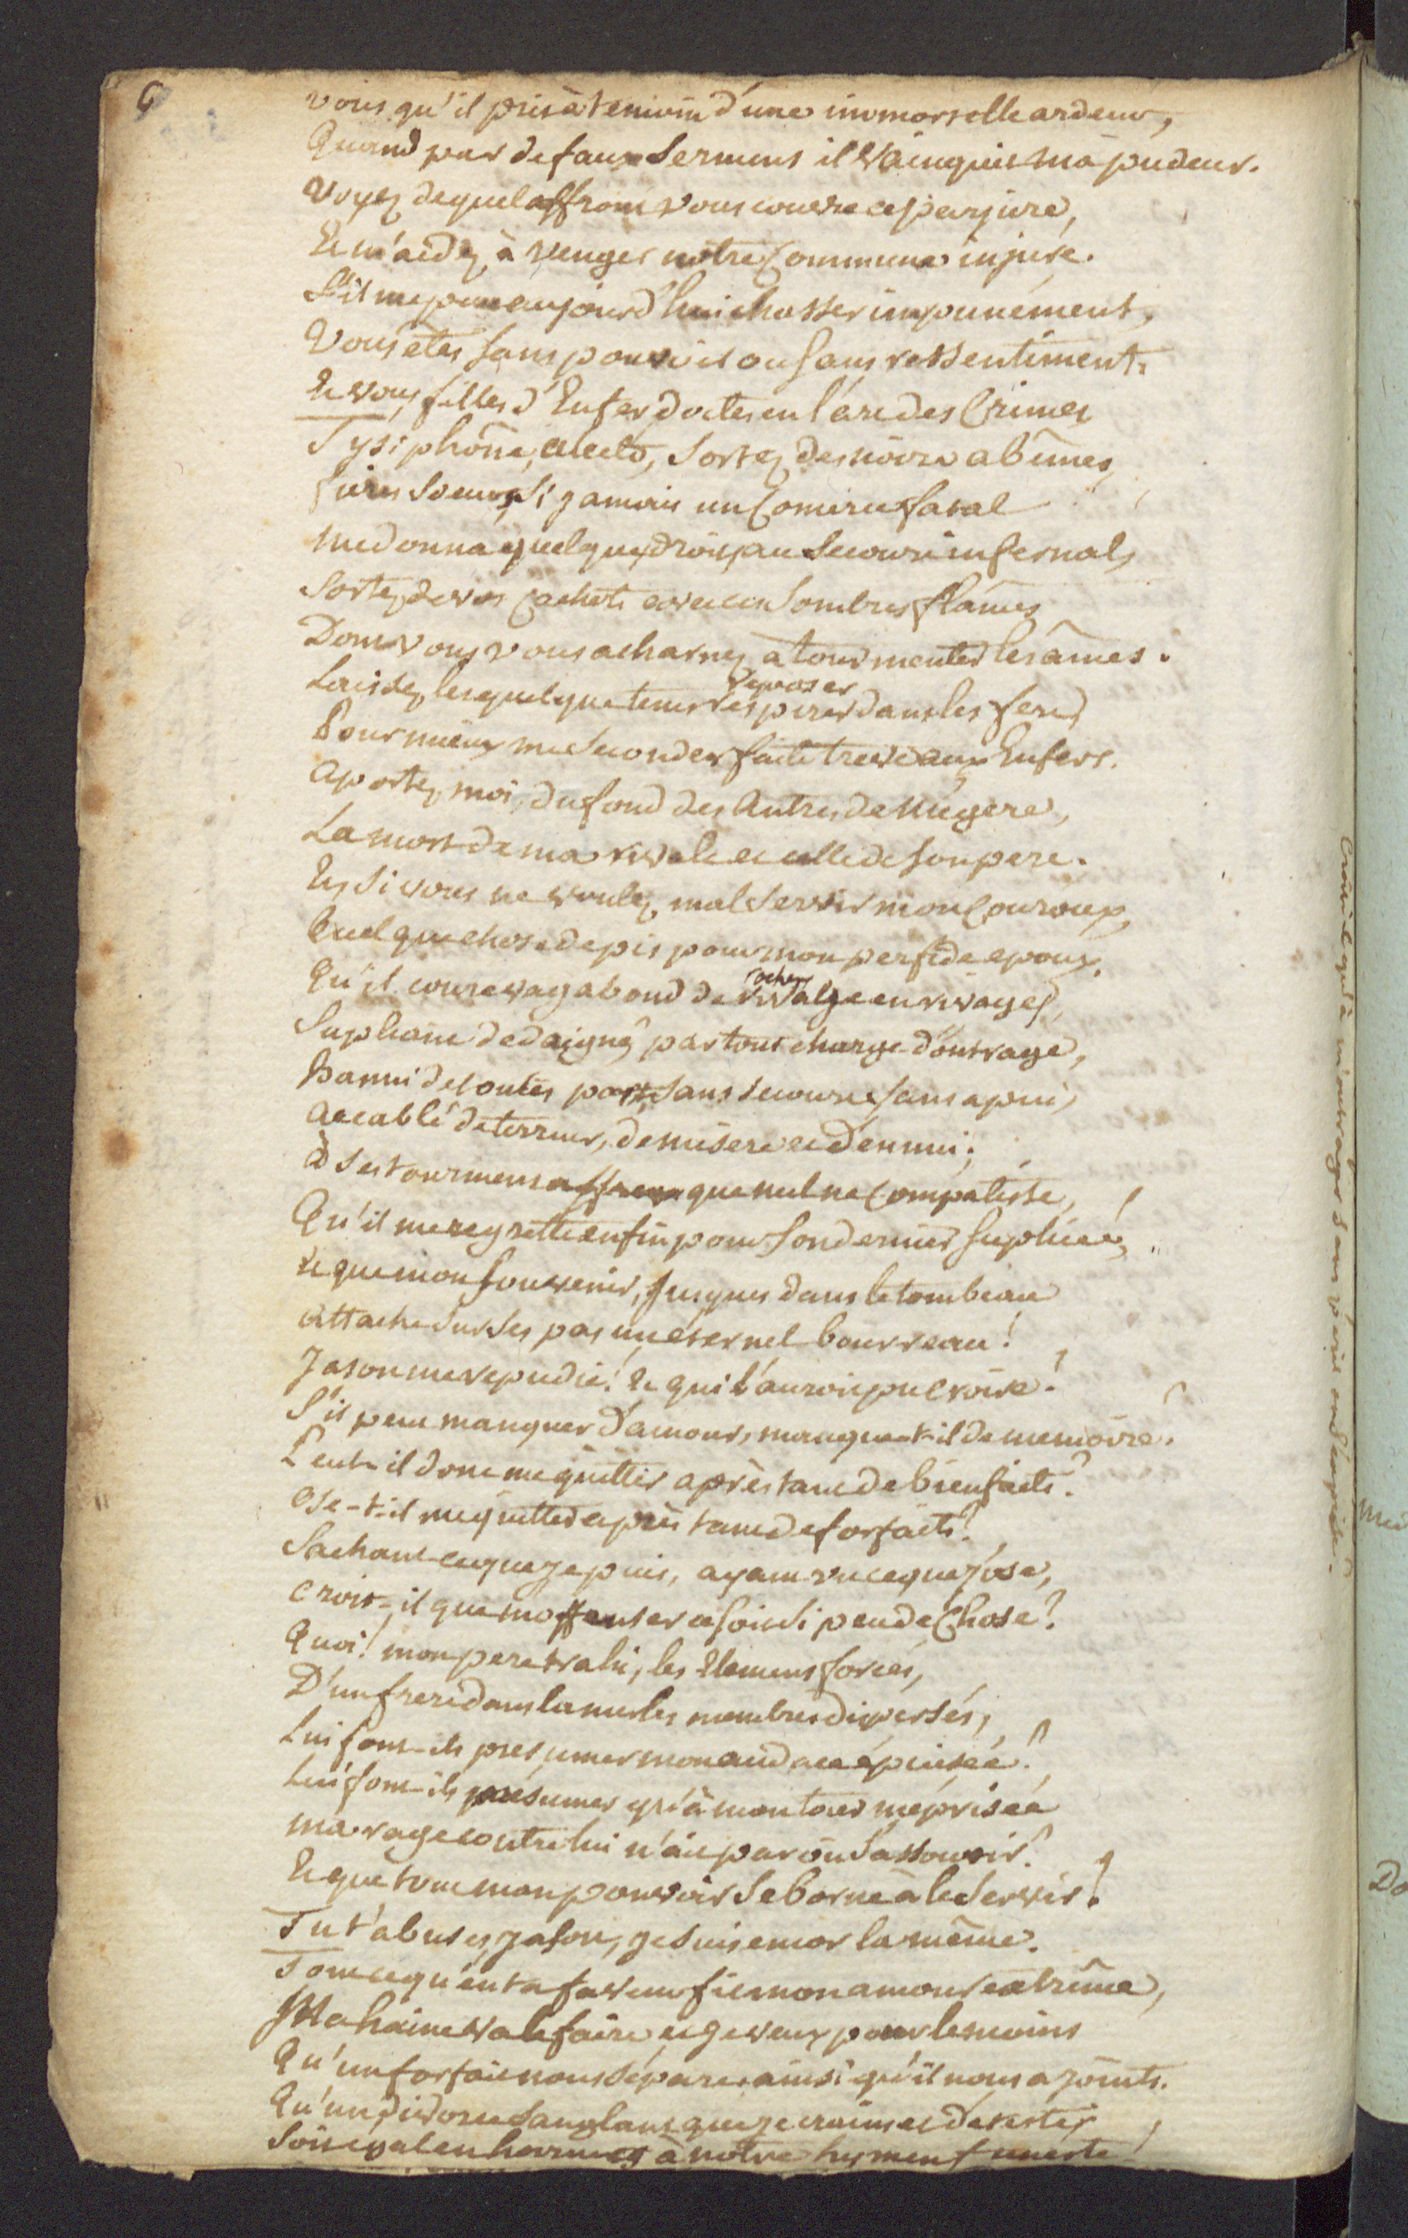 6
vous qu'il prit à temoin d'une immortelle ardeur,
Quand par de faux Sermens il vainquit ma pudeur.
Voyez de quel affront vous couvre ce parjure,
Et m'aidez à venger notre Commune injure.
S'il me peut aujourd'hui chasser impunément,
Vous êtes sans pouvoir ou sans ressentiment.
Et vous, filles d'Enfer doctes en l'art des Crimes
Tysiphône, Alecto, Sortez des noirs abîmes,
fieres Soeurs, Si jamais un Comerce fatal
me donna quelques droits au Secours infernal,
Sortez de vos Cachots avec ces Sombres flâmes
Dont vous vous acharnez à tourmenter les âmes.
reposer
Laissez les quelque tems respirer dans les fers,
Pour mieux me Seconder faites treve aux Enfers.
Aportez moi, du fond des Antres de Mégere,
La mort de ma rivale et celle de son pere.
Et, Si vous ne voulez mal Servir mon Couroux,
Quelque chose de pis pour mon perfide epoux.
rocher
Qu'il coure vagabond de rivage en rivages,
Supliant dedaigné par tout chargé d'outrage,
Banni de toutes parts, Sans secours, Sans apui,
Accablé de terreur, de misere et d'ennui;
à Ses tourmens affreux que nul ne Compatisse,
Qu'il me regrette enfin pour Son dernier Suplice!
Et que mon Souvenir, Jusques dans le tombeau
Attache Sur Ses pas un éternel bourreau!
Jason me repudie! Et qui l'auroit pu croire!
S'il peut manquer d'amour, manque-t-il de memoire?
Peut-il donc me quitter après tant de bienfaits?
Ose-t-il me quitter après tant de forfaits?
Sachant ce que je puis, ayant vu ce que j'ose,
Croit-il que m'offenser ce Soit Si peu de Chose?
Quoi! mon pere trahi, les Elemens forcés,
D'un frere dans la mer les membres dispersés,
Lui font-ils presumer mon audace épuisée?
Lui font-ils présumer qu'à mon tour méprisée
ma rage contre lui n'ait par où S'assouvir?
Et que tout mon pouvoir Se borne à le Servir?
Tu t'abuses, Jason, je Suis encor la même.
Tout ce qu'en ta faveur fit mon amour extrême,
Ma haine va le faire, et je veux pour le moins
Qu'un forfait nous Sépare, ainsi qu'il nous a joints.
Qu'un divorce Sanglant que je crains et déteste,
Soit egal en horreurs à notre hymen funeste!
m'outrager sans
Med
Do